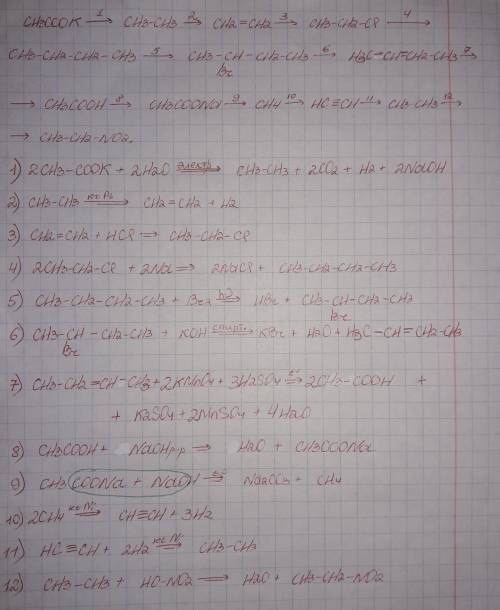 CH3COOK 1→ CH3-CH3 2→ CH2=CH2 3→ CH3-CH2-Cl 4→
CH3-CH2-CH2-CH3 5→ CH3-CH-CH2-CH3 6→ H3C-CH=CH2-CH3 7→
Br
→ CH3COOH 8→ CH3COONa 9→ CH4 10→ HC≡CH 11→ CH3-CH3 12→
→ CH3-CH2-NO2.
1) 2CH3-COOK + 2H2O электр.→ CH3-CH3 + 2CO2 + H2 + 2NaOH
2) CH3-CH3 kt Pt→ CH2=CH2 + H2
3) CH2=CH2 + HCl → CH3-CH2-Cl
4) 2CH3-CH2-Cl + 2Na → 2NaCl + CH3-CH2-CH2-CH3
5) CH3-CH2-CH2-CH3 + Br2 hν→ HBr + CH3-CH-CH2-CH3
Br
6) CH3-CH-CH2-CH3 + KOH спирт.→ KBr + H2O + H3C-CH=CH2-CH3
Br
7) CH3-CH2=CH-CH3 + 2KMnO4 + 3H2SO4 t°→ 2CH3-COOH +
+ K2SO4 + 2MnSO4 + 4H2O
8) CH3COOH + NaOH р-р → H2O + CH3COONa
9) CH3COONa + NaOH t°→ Na2CO3 + CH4
10) 2CH4 kt Ni→ CH≡CH + 3H2
11) HC≡CH + 2H2 kt Ni→ CH3-CH3
12) CH3-CH3 + HO-NO2 → H2O + CH3-CH2-NO2